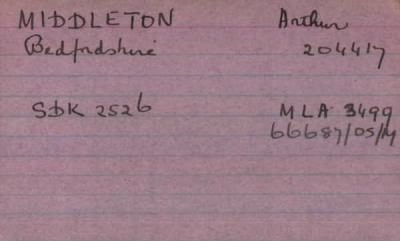 MIDDLETON Arthur
Bedfordshire 204417
SDK 2526 MLA 3499
66687/05/M